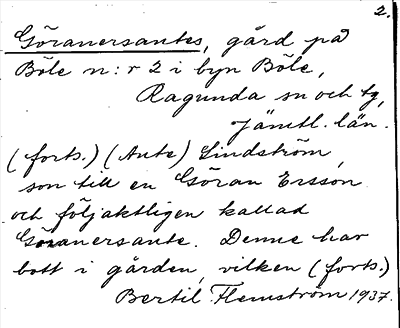 2.
Göranersantes, gård på
Böle n:r 2 i byn Böle,
Ragunda sn och tg,
Jämtl. län.
(forts.) (Ante) Lindström,
son till en Göran Ersson
och följaktligen kallad
Göranersante. Denne har
bott i gården, vilken (forts.)
Bertil Flemström 1937.